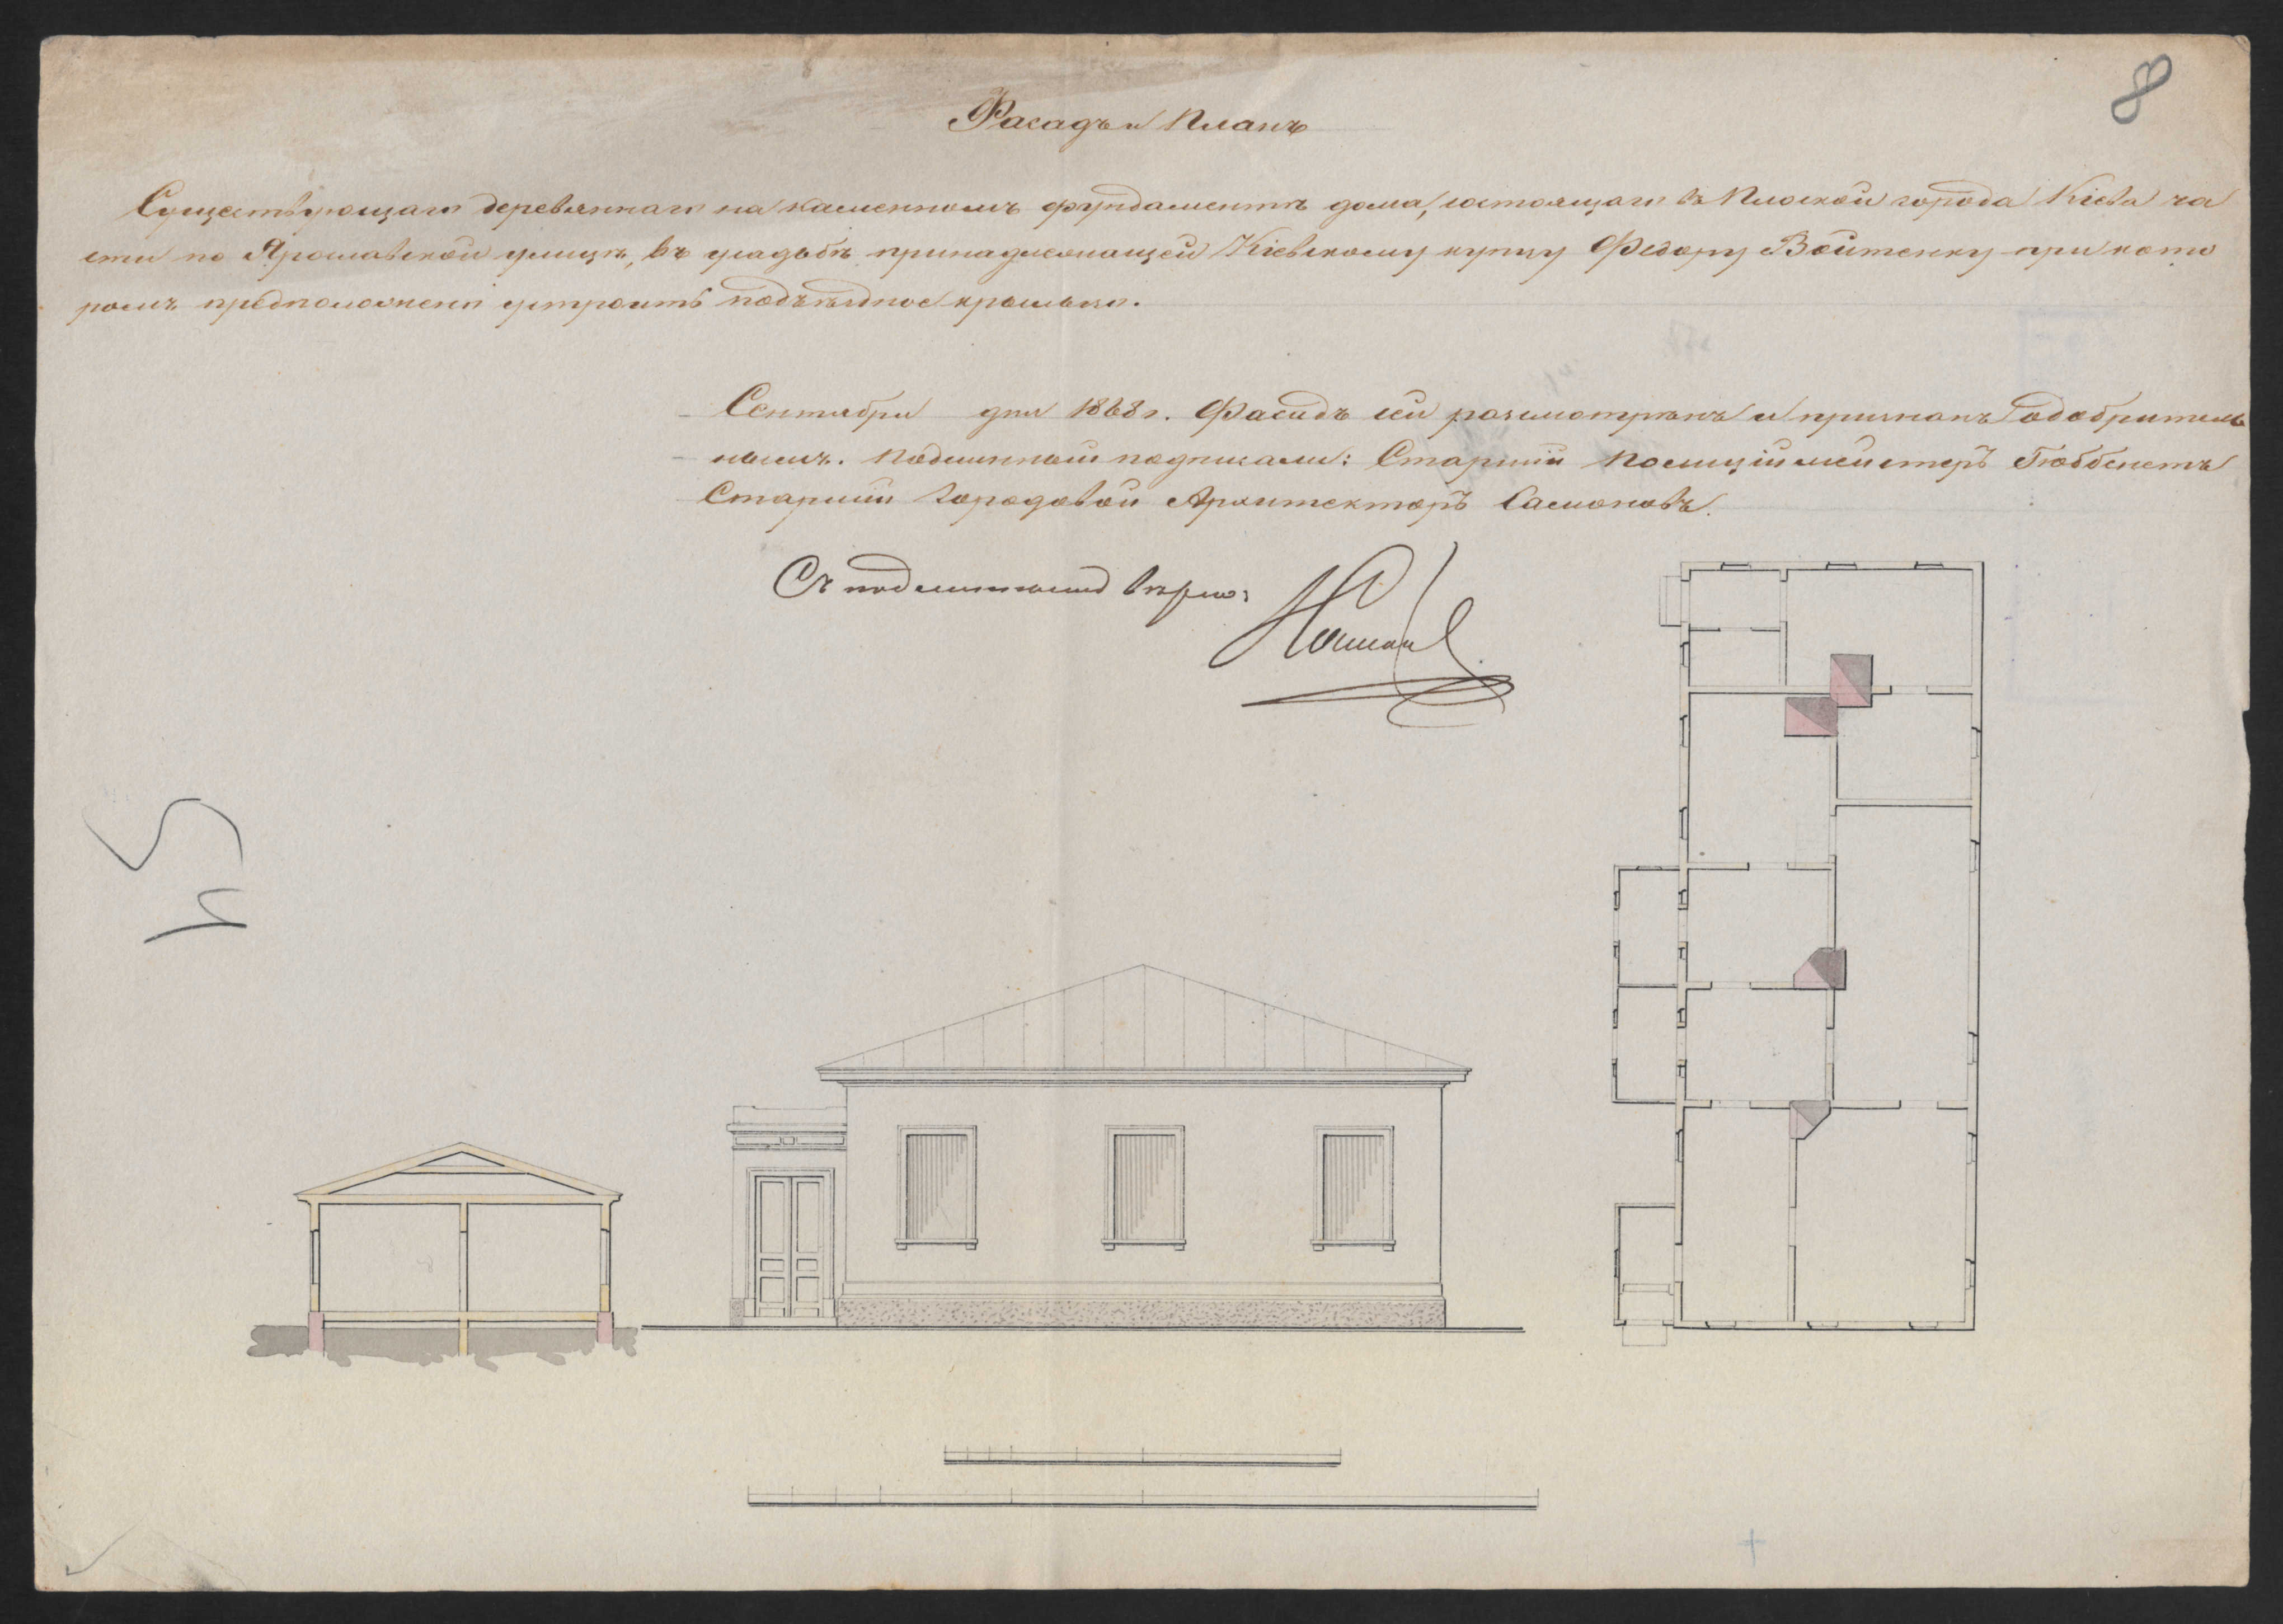 8
Фасадъ и Планъ
Существующаго деревяннаго на каменномъ фундаментѣ дома, состоящаго въ Плоской города Кіева ча
сти по Ярославской улицѣ, въ усадьбѣ принадлежащей Кіевскому купцу Федору Войтенку при кото
ромъ предположено устроить подъѣздное крыльцо.
Сентября дня 1868 г. Фасадъ сей разсмотрѣнъ и признанъ одобритель
нымъ. Подлинный подписали: Старшій Полиціймейстеръ Гюббенетъ
Старшій Городовой Архитекторъ
Съ подлиннымъ вѣрно: